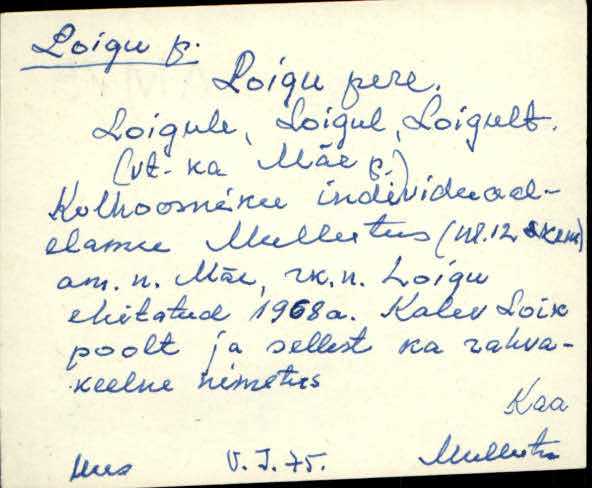 Loigu p.
Loigu pere.
Loigule, Loigul, Loigult.
(vt. ka Mäe p.)
Kolhoosniku individuaal-
elamu Mullutus (nr. 12 skeem)
am. n. Mäe, rk. n. Loigu
ehitatud 1968 a. Kalev Loik
poolt ja sellest ka rahva-
keelne nimetus
Kaa
V. I. 75.
Mullutu